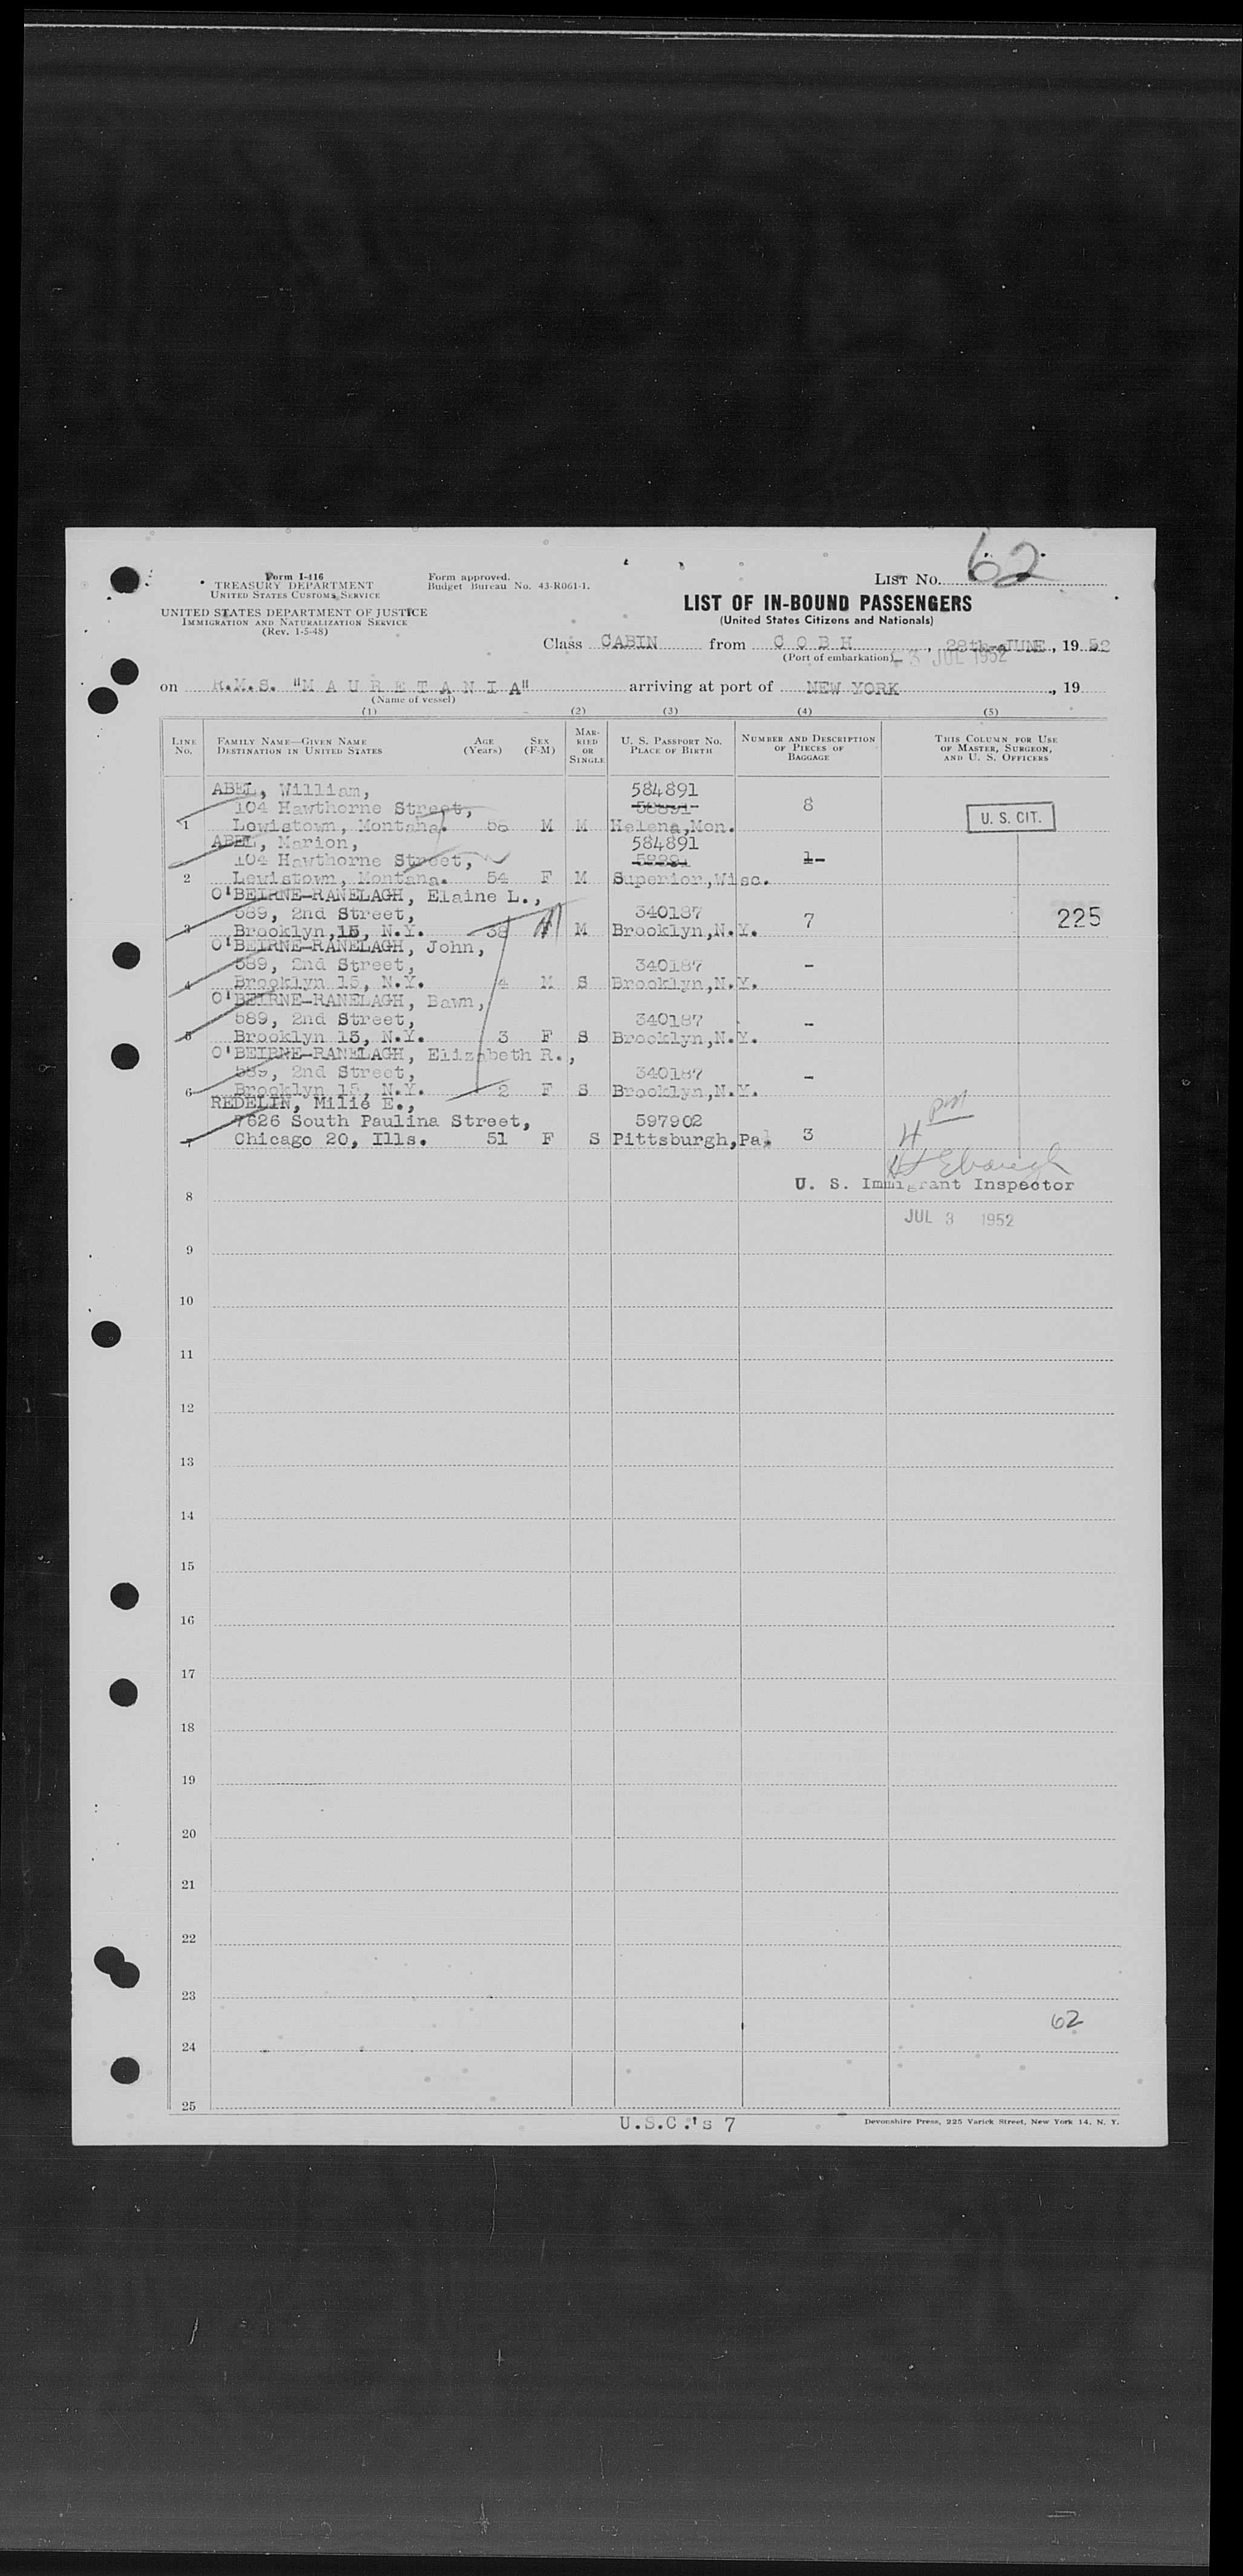 62
Form I-416
TREASURY DEPARTMENT
UNITED STATES CUSTOMS SERVICE
UNITED STATES DEPARTMENT OF JUSTICE
IMMIGRATION AND NATURALIZATION SERVICE
(Rev. 1-5-48)
Form approved.
Budget Bureau No. 43-R061-1.
LIST No.
LIST OF IN-BOUND PASSENGERS
(United States Citizens and Nationals)
Class CABIN from C O B H, 28th JUNE, 19 52
(Port of embarkation) 3 JUL 1952
on R.M.S. "M A U R E T A N I A" arriving at port of NEW YORK, 19
(Name of vessel)
(1) (2) (3) (4) (5)
LINE No. FAMILY NAME—GIVEN NAME DESTINATION IN UNITED STATES AGE (Years) SEX (F-M) MARRIED OR SINGLE U. S. PASSPORT No. PLACE OF BIRTH NUMBER AND DESCRIPTION OF PIECES OF BAGGAGE THIS COLUMN FOR USE OF MASTER, SURGEON, AND U. S. OFFICERS
ABEL, William, 584891
104 Hawthorne Street, 58891 8
1 Lewistown, Montana. 58 M M Helena,Mon. U. S. CIT.
ABEL, Marion, 584891
104 Hawthorne Street, 58891 1-
2 Lewistown, Montana. 54 F M Superior,Wisc.
O'BEIRNE-RANELAGH, Elaine L.,
589, 2nd Street, 340187 7 225
3 Brooklyn,15, N.Y. 38 F M Brooklyn,N.Y.
O'BEIRNE-RANELAGH, John,
589, 2nd Street, 340187 -
4 Brooklyn 15, N.Y. 4 M S Brooklyn,N.Y.
O'BEIRNE-RANELAGH, Bawn,
589, 2nd Street, 340187 -
5 Brooklyn 15, N.Y. 3 F S Brooklyn,N.Y.
O'BEIRNE-RANELAGH, Elizabeth R.,
589, 2nd Street, 340187 -
6 Brooklyn 15, N.Y. 2 F S Brooklyn,N.Y.
REDELIN, Milie E.,
7626 South Paulina Street, 597902 3
7 Chicago 20, Ills. 51 F S Pittsburgh,Pa.
U. S. Immigrant Inspector
8
JUL 3 1952
9
10
11
12
13
14
15
16
17
18
19
20
21
22
23
62
24
25
U.S.C.'s 7
Devonshire Press, 225 Varick Street, New York 14, N. Y.